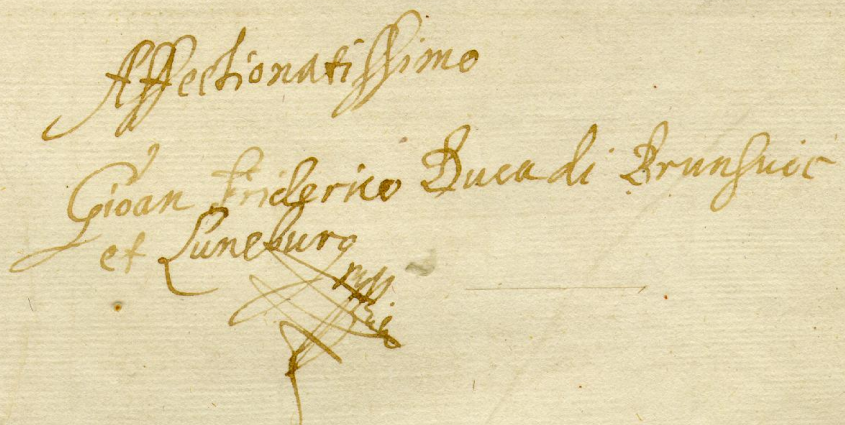 Affectionatissimo
Gioan Friderico Duca di Brunsuic
et Luneburg